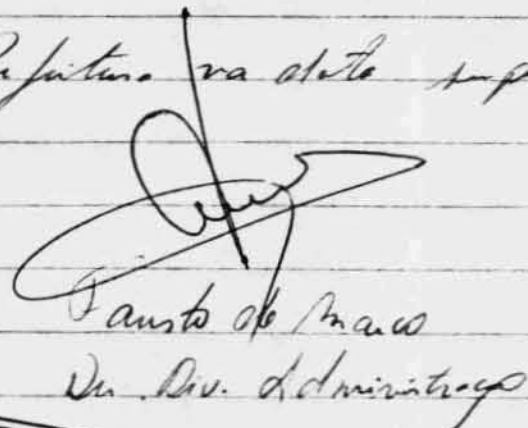 Prefeitura na data sup
Fausto de Marco
Dir. Div. Administração